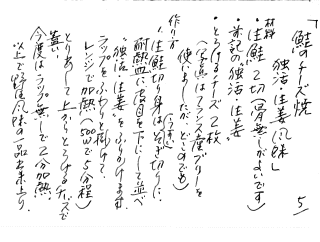 「鮭のチーズ焼
独活・生姜風味」 5
材料
・生鮭 2切(骨無しがよいです)
・味記の独活・生姜
・とろけるチーズ 2枚
(写真はフランス産ブリーを
使いましたが、どれでも)
作り方
生鮭切り身は 切りに、
耐熱皿に皮目を下にして並べ
独活・生姜をふりかけます
ラップをふわりと掛けて、
レンジで加熱(500wで5分程)
とり出して上からとろけるチーズで
蓋い
今度はラップ無しで2分加熱、
以上で野風味の一品出来上り。